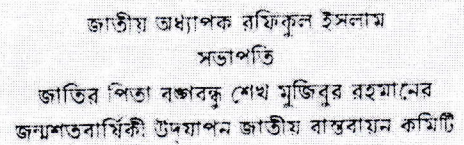 জাতীয় অধ্যাপক রফিকুল ইসলাম
সভাপতি
জাতির পিতা বঙ্গবন্ধু শেখ মুজিবুর রহমানের
জন্মশতবার্ষিকী উদযাপন জাতীয় বাস্তবায়ন কমিটি